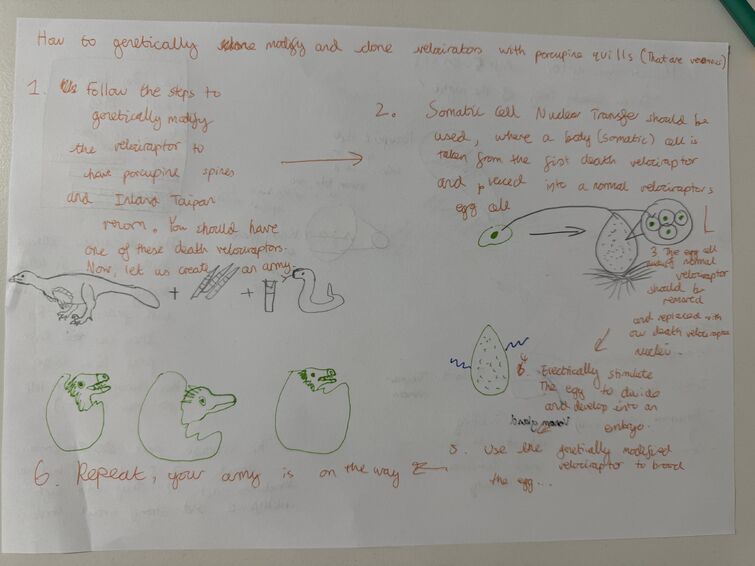 How to genetically modify and clone velociraptors with porcupine quills (That are venomous)
1. Follow the steps to
genetically modify
the velociraptor to
have porcupine spines
and Inland Taipan
venom. You should have
one of these death velociraptors.
Now, let us create an army.
+ +
2. Somatic Cell Nuclear Transfer should be
used, where a body (somatic) cell is
taken from the first death velociraptor
and placed into a normal velociraptor's
egg cell
3. The egg cell
normal
velociraptor
should be
removed
and replaced with
our death velociraptor
nuclei.
4. Electrically stimulate
The egg to divide
and develop into an
embryo.
Venom gland
5. Use the genetically modified
velociraptor to brood
the egg...
6. Repeat, your army is on the way